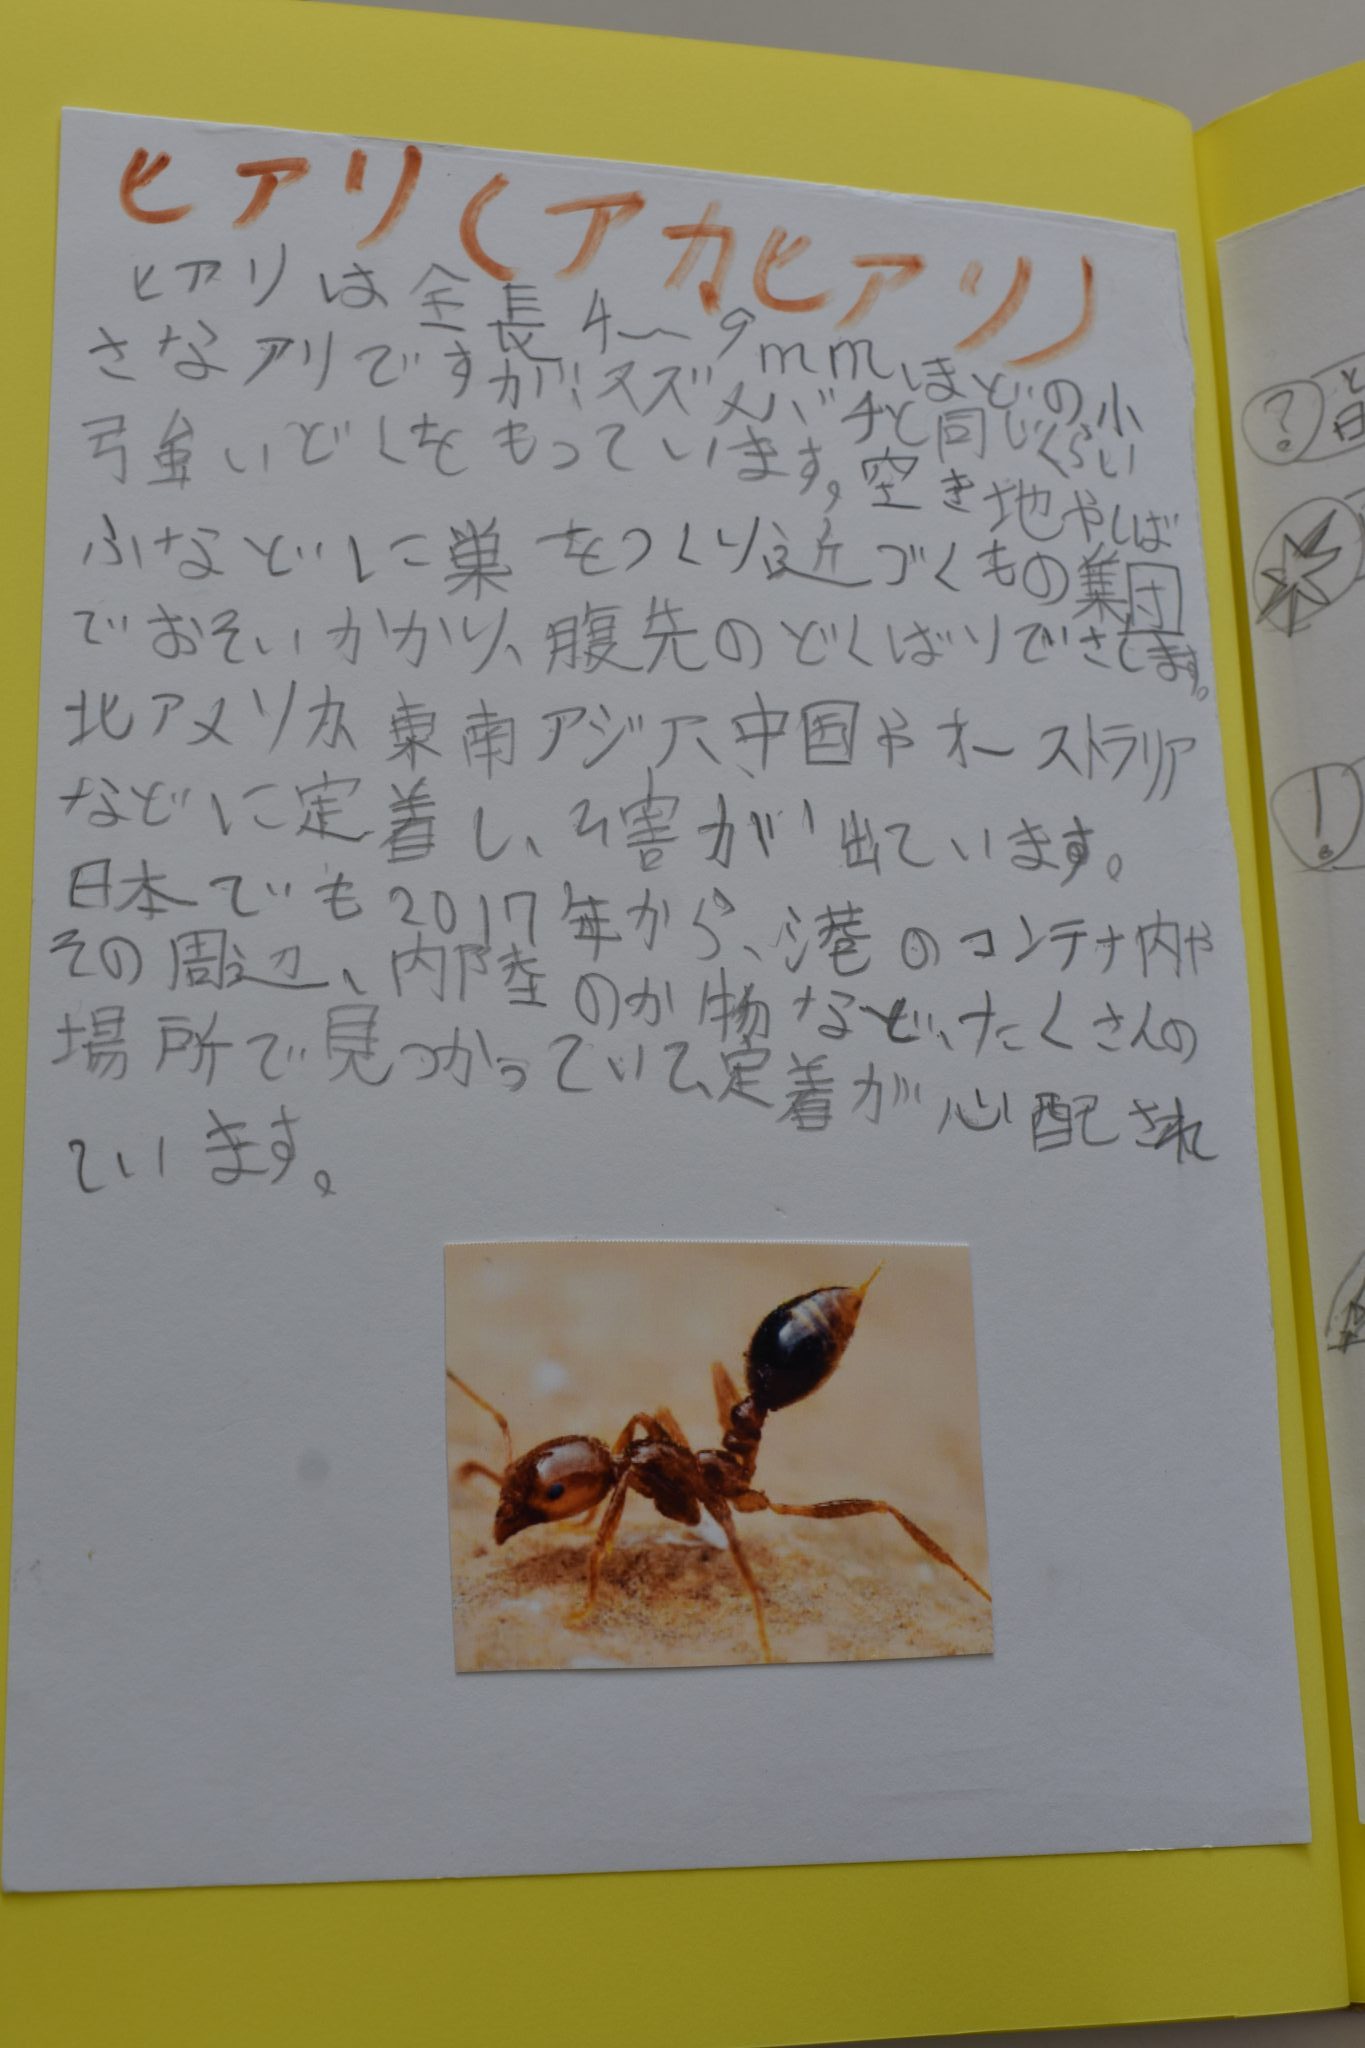 ヒアリ(アカヒアリ)
ヒアリは全長4〜9mmほどの小
さなアリですが、スズメバチと同じくらい
強いどくをもっています。空き地やしば
ふなどに巣をつくり近づくもの集団
でおそいかかり、腹先のどくばりでさします。
北アメリカ東南アジア、中国やオーストラリア
などに定着し、害が出ています。
日本でも2017年から、港のコンテナ内や
その周辺、内陸のか物など、たくさんの
場所で見つかっていて、定着が心配され
ています。
?
と
日
!